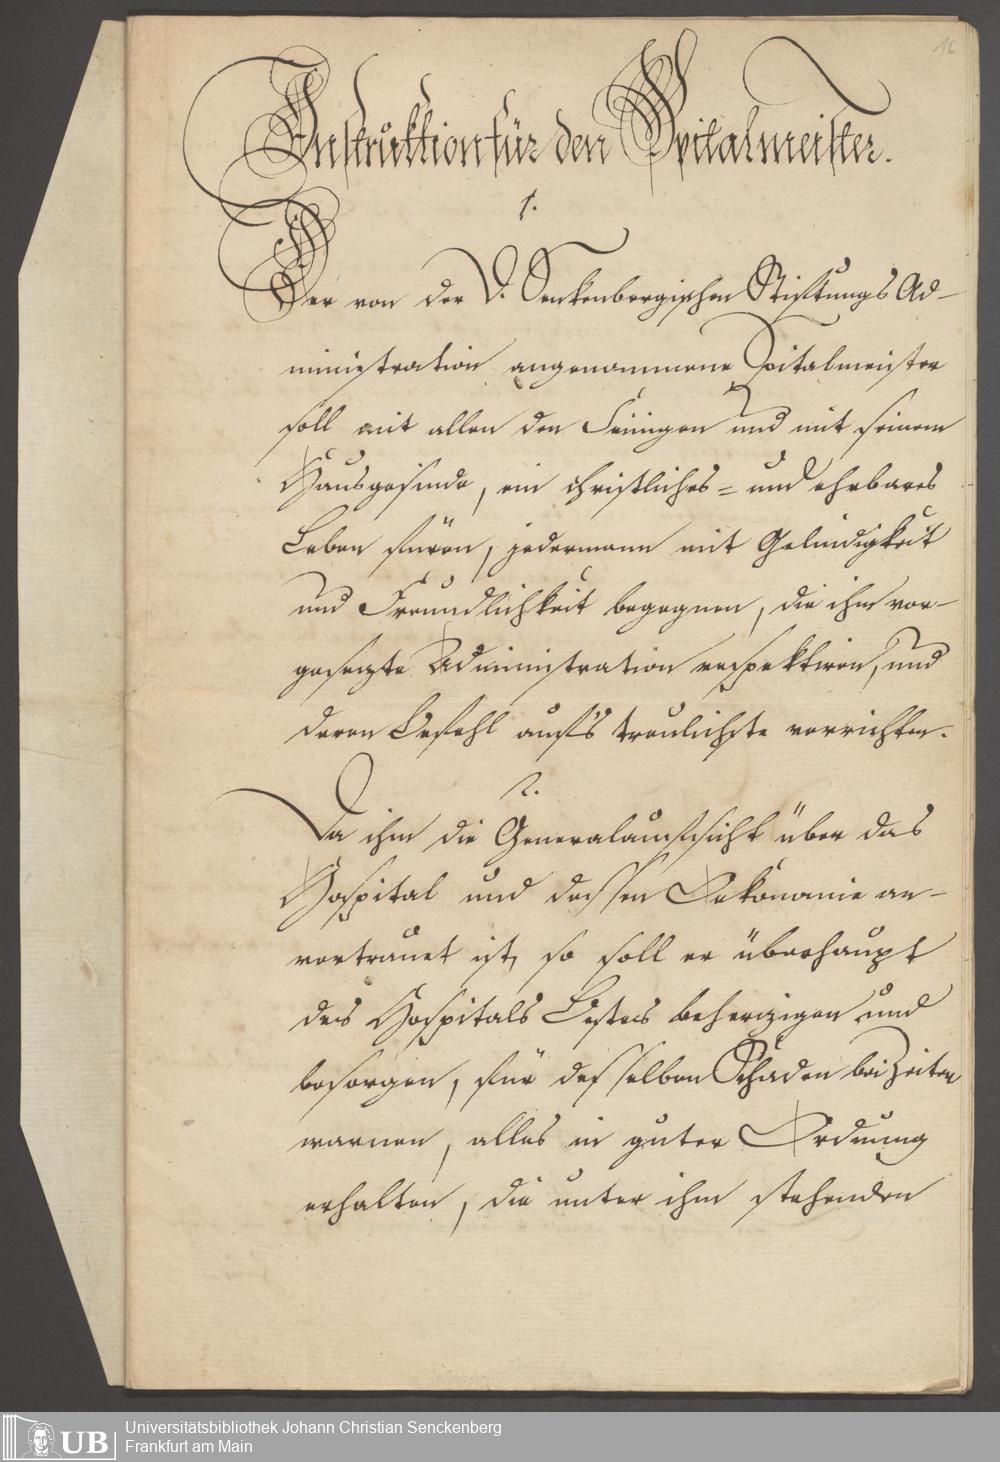 16
Instruktion für den Spitalmeister.
1.
Der von der D. Senkenbergischen Stiftungs Ad-
ministration angenommene Spitalmeister
soll mit allen den Seinigen und mit seinem
Hausgesinde, ein christliches = und ehrbares
Leben füren, jedermann mit Gelindigkeit
und Freundlichkeit begegnen, die ihm vor-
gesezte Administration respektiren, und
deren Befehl aufs treulichste verrichten.
2.
Da ihm die Generalaufsicht über das
Hospital und dessen Oekonomie an-
vertrauet ist, so soll er überhaupt
des Hospitals Bestes beherzigen und
besorgen, für desselben Schaden bei Zeiten
warnen, alles in guter Ordnung
erhalten, die unter ihm stehenden
UB
Universitätsbibliothek Johann Christian Senckenberg
Frankfurt am Main